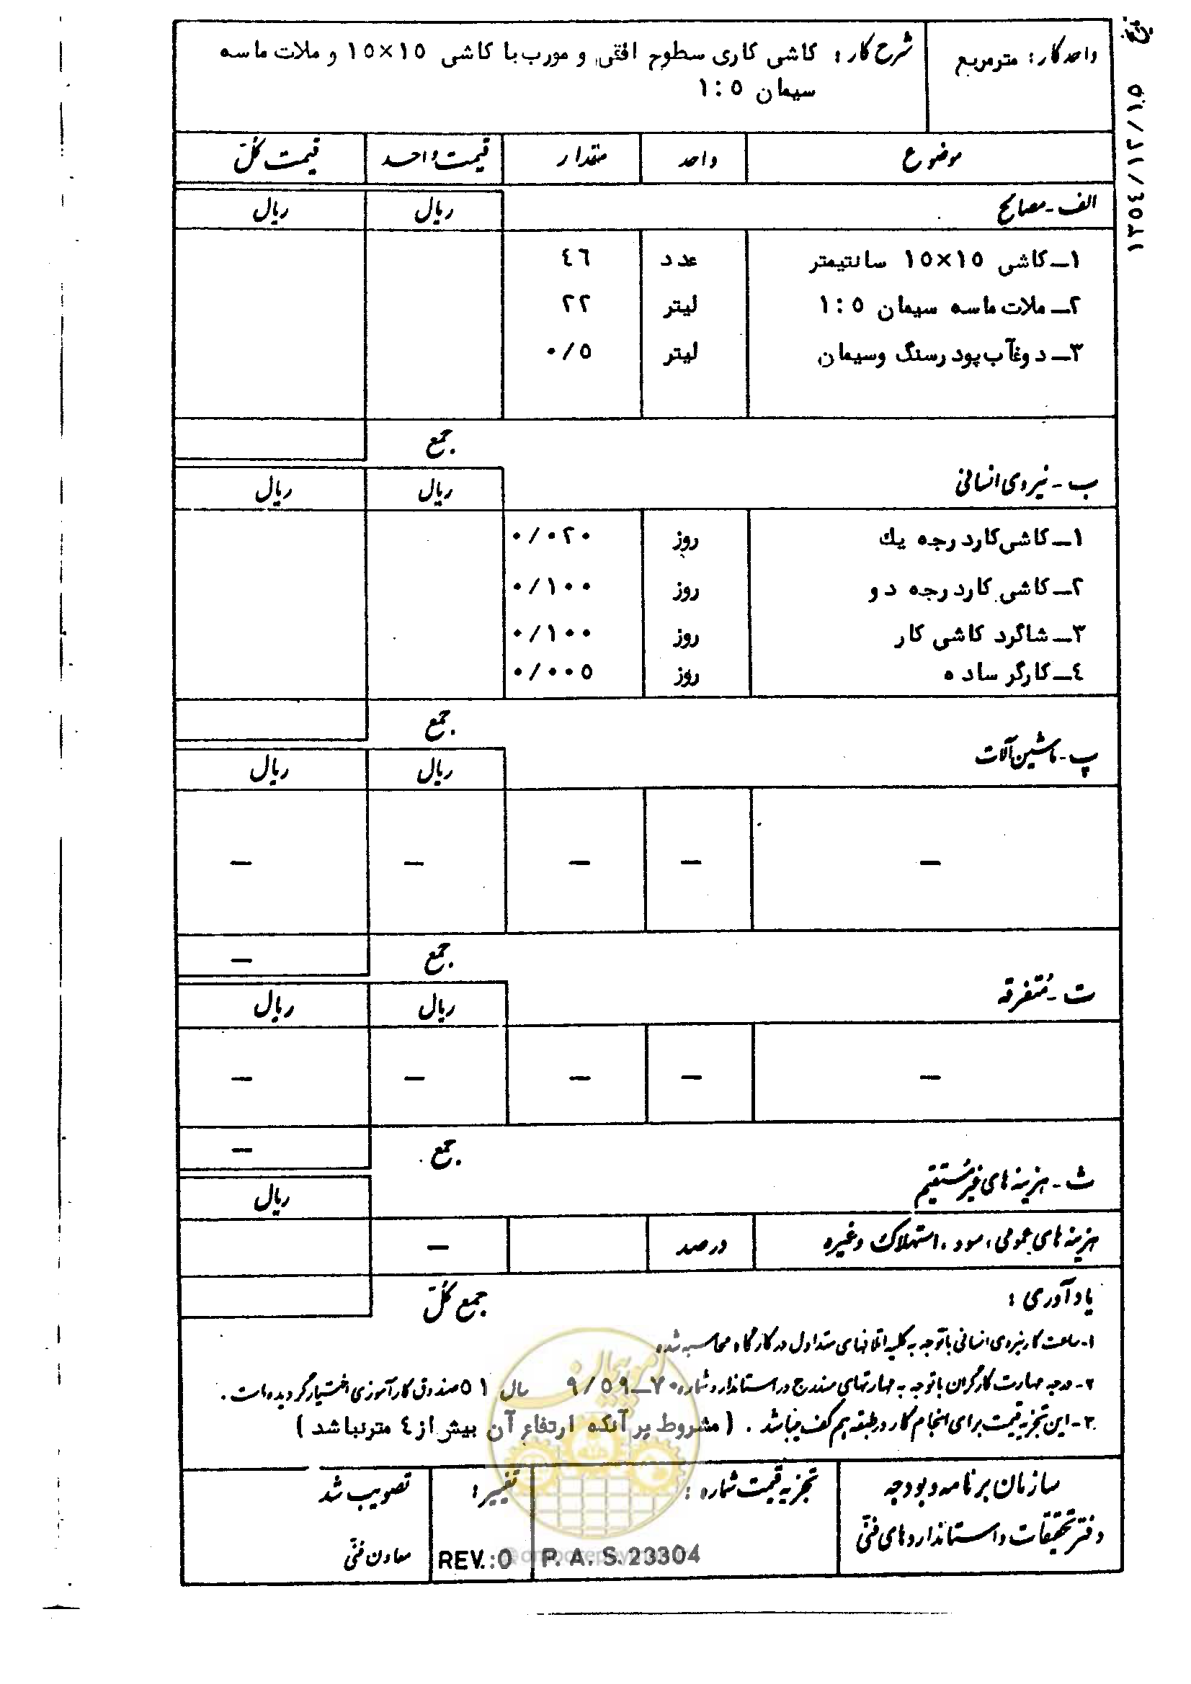 واحدکار: مترمربع
شرح کار: کاشی کاری سطوح افقی و مورب با کاشی ۱۵×۱۵ و ملات ماسه
سیمان ۱:۵
تاریخ ۱۳۵۴/۱۲/۱۵
موضوع واحد مقدار قیمت واحد قیمت کلّ
الف-مصالح ریال ریال
۱ـ کاشی ۱۵×۱۵ سانتیمتر عدد ۴۶
۲ـ ملات ماسه سیمان ۱:۵ لیتر ۲۲
۳ـ دوغآب پودرسنگ وسیمان لیتر ۰/۵
جمع
ب-نیروی انسانی ریال ریال
۱ـ کاشی کاردرجه یك روز ۰/۰۲۰
۲ـ کاشی کاردرجه دو روز ۰/۱۰۰
۳ـ شاگرد کاشی کار روز ۰/۱۰۰
۴ـ کارگر ساده روز ۰/۰۰۵
جمع
پ-ماشین آلات ریال ریال
— — — — —
جمع —
ت-مُتفرقه ریال ریال
— — — — —
جمع —
ث-هزینه های غیرمُستقیم ریال
هزینه های عمومی، سود، استهلاک وغیره درصد —
جمع کُلّ
یادآوری:
۱-ساعت کارنیروی انسانی باتوجه به کلیه اتلافهای متداول در کارگاه محاسبه شده
۲-درجه مهارت کارگران باتوجه به مهارتهای مندرج در استاندارد شماره ۷۰ـ۹/۵۹ سال ۵۱ صندوق کارآموزی اختیار گردیده است.
۳-این تجزیه قیمت برای انجام کار در طبقه هم کف میباشد. (مشروط بر آنکه ارتفاع آن بیش از ۴ مترنباشد)
سازمان برنامه و بودجه
دفتر تحقیقات و استانداردهای فنّی
تجزیه قیمت شماره:
P. A. S. 23304
تغییر:
REV.:0
تصویب شد
معاون فنّی